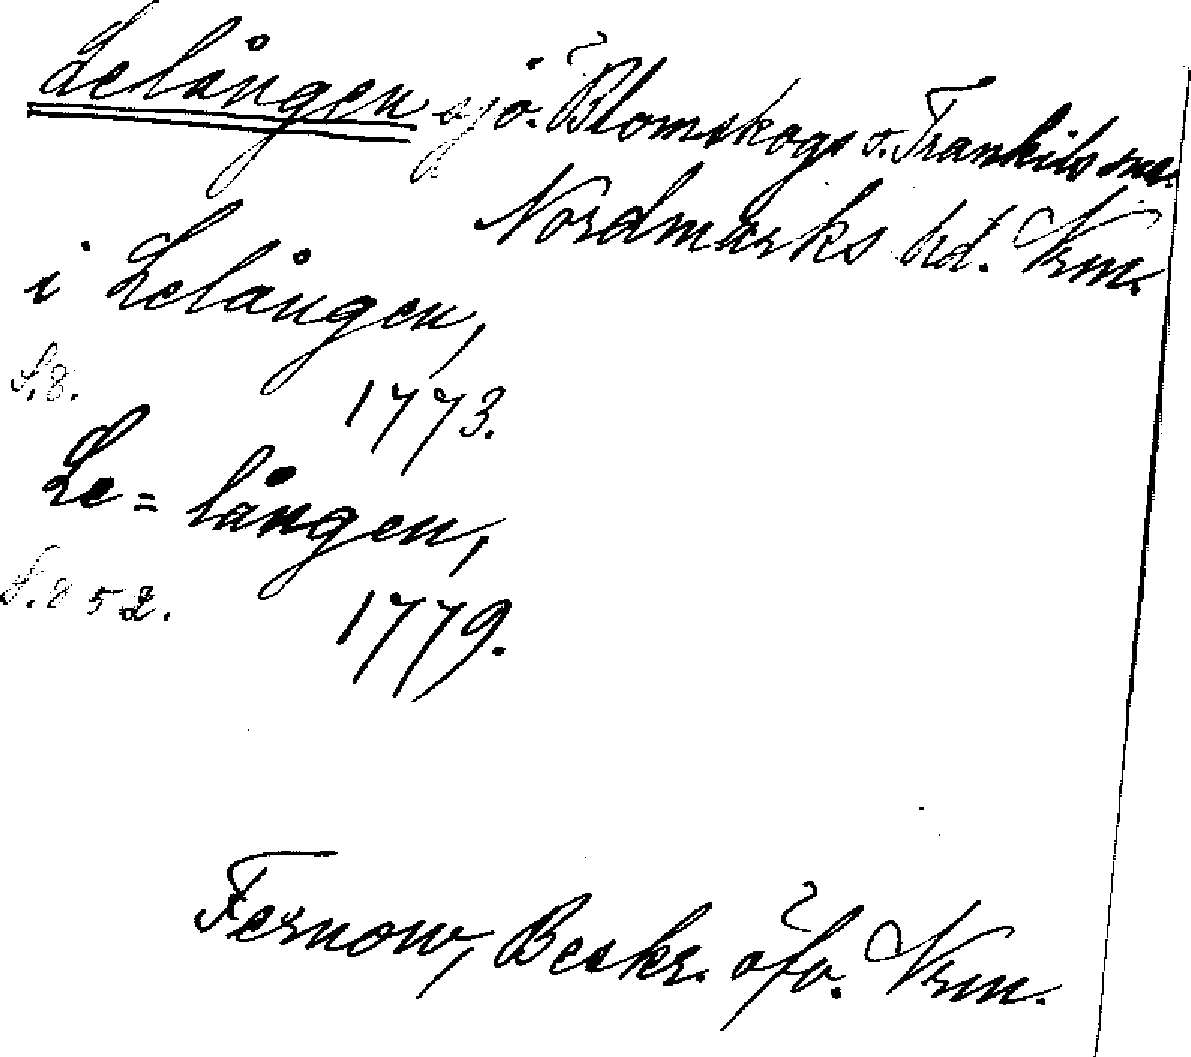 Lelången sjö. Blomskogs o. Trankils snr.
Nordmarks hd. Vrm.
i Lelången,
S. 8.
1773.
Le= lången,
S. 852.
1779.
Fernow, Beskr. öfv. Vrm.